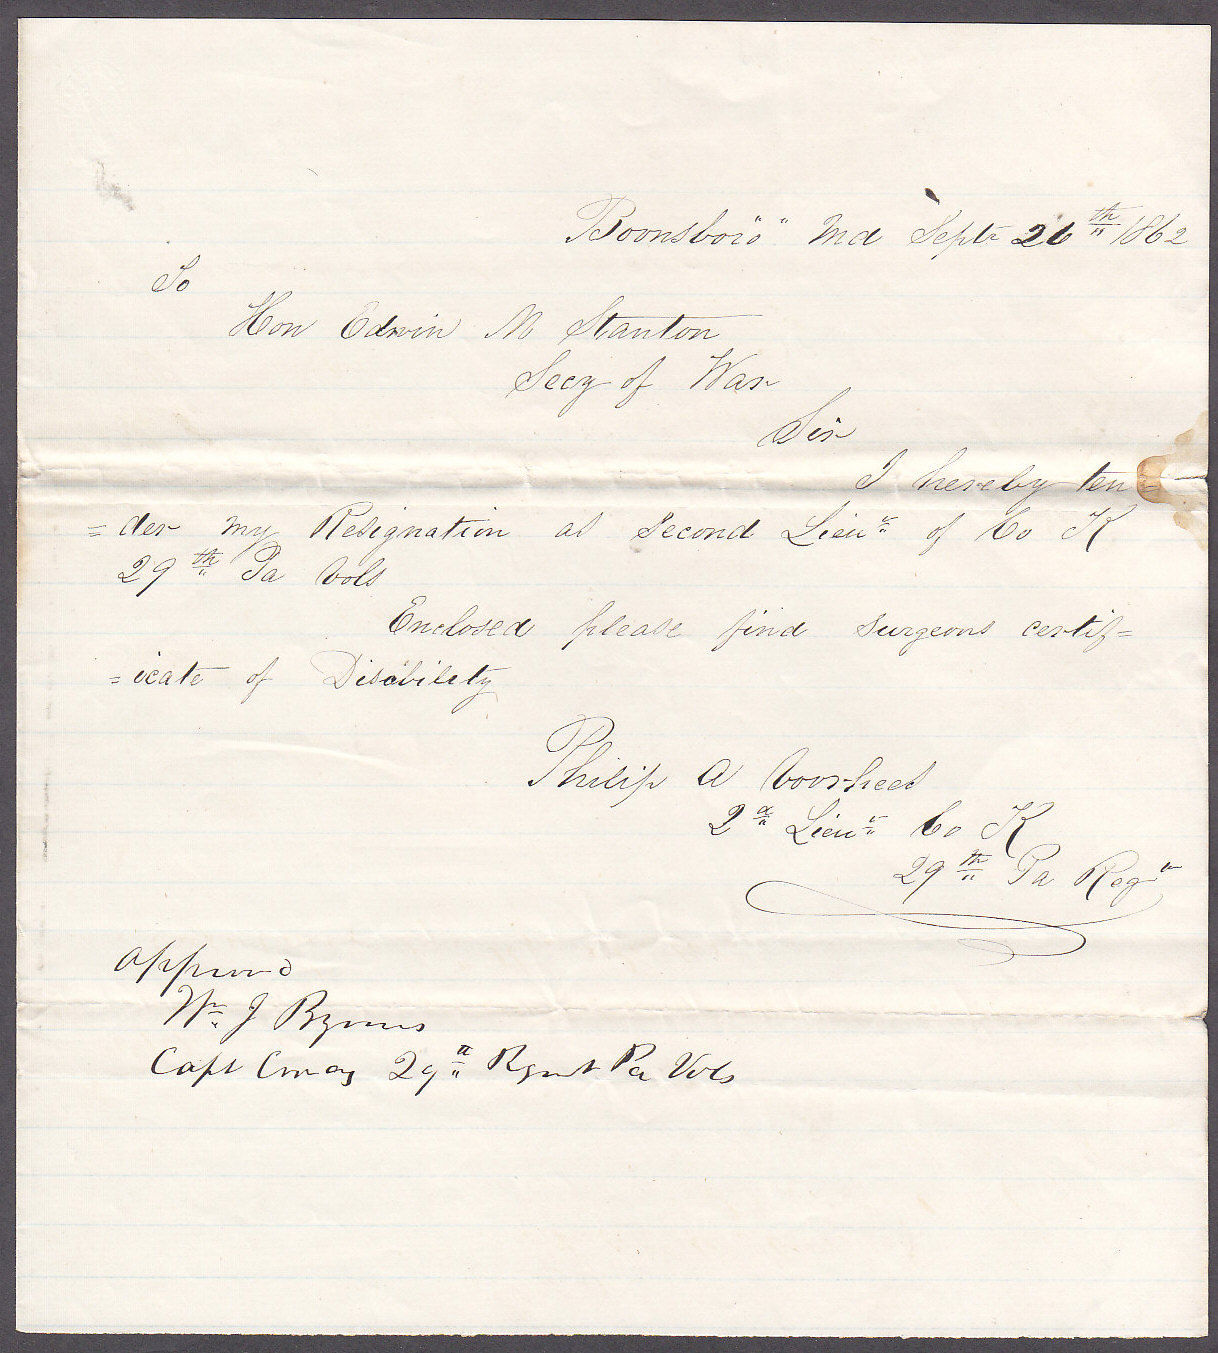 Boonsboro" " Md Septr 26th 1862
To
Hon Edwin M Stanton
Secy of War
Sir
I hereby ten-
=der my Resignation as Second Lieut of Co K
29th Pa Vols
Enclosed please find Surgeons certif=
=icate of Disibility
Philip A Voorhees
2d Lieut Co K
29th Pa Regt
approved
Wm J Byrnes
Capt Comdg 29th Regmt Pa Vols